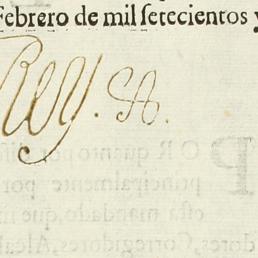 Febrero de mil setecientos y
Rey. SA.
O R quanto por
principalmente por
esta mandado, que
dores, Corregidores, Alcal